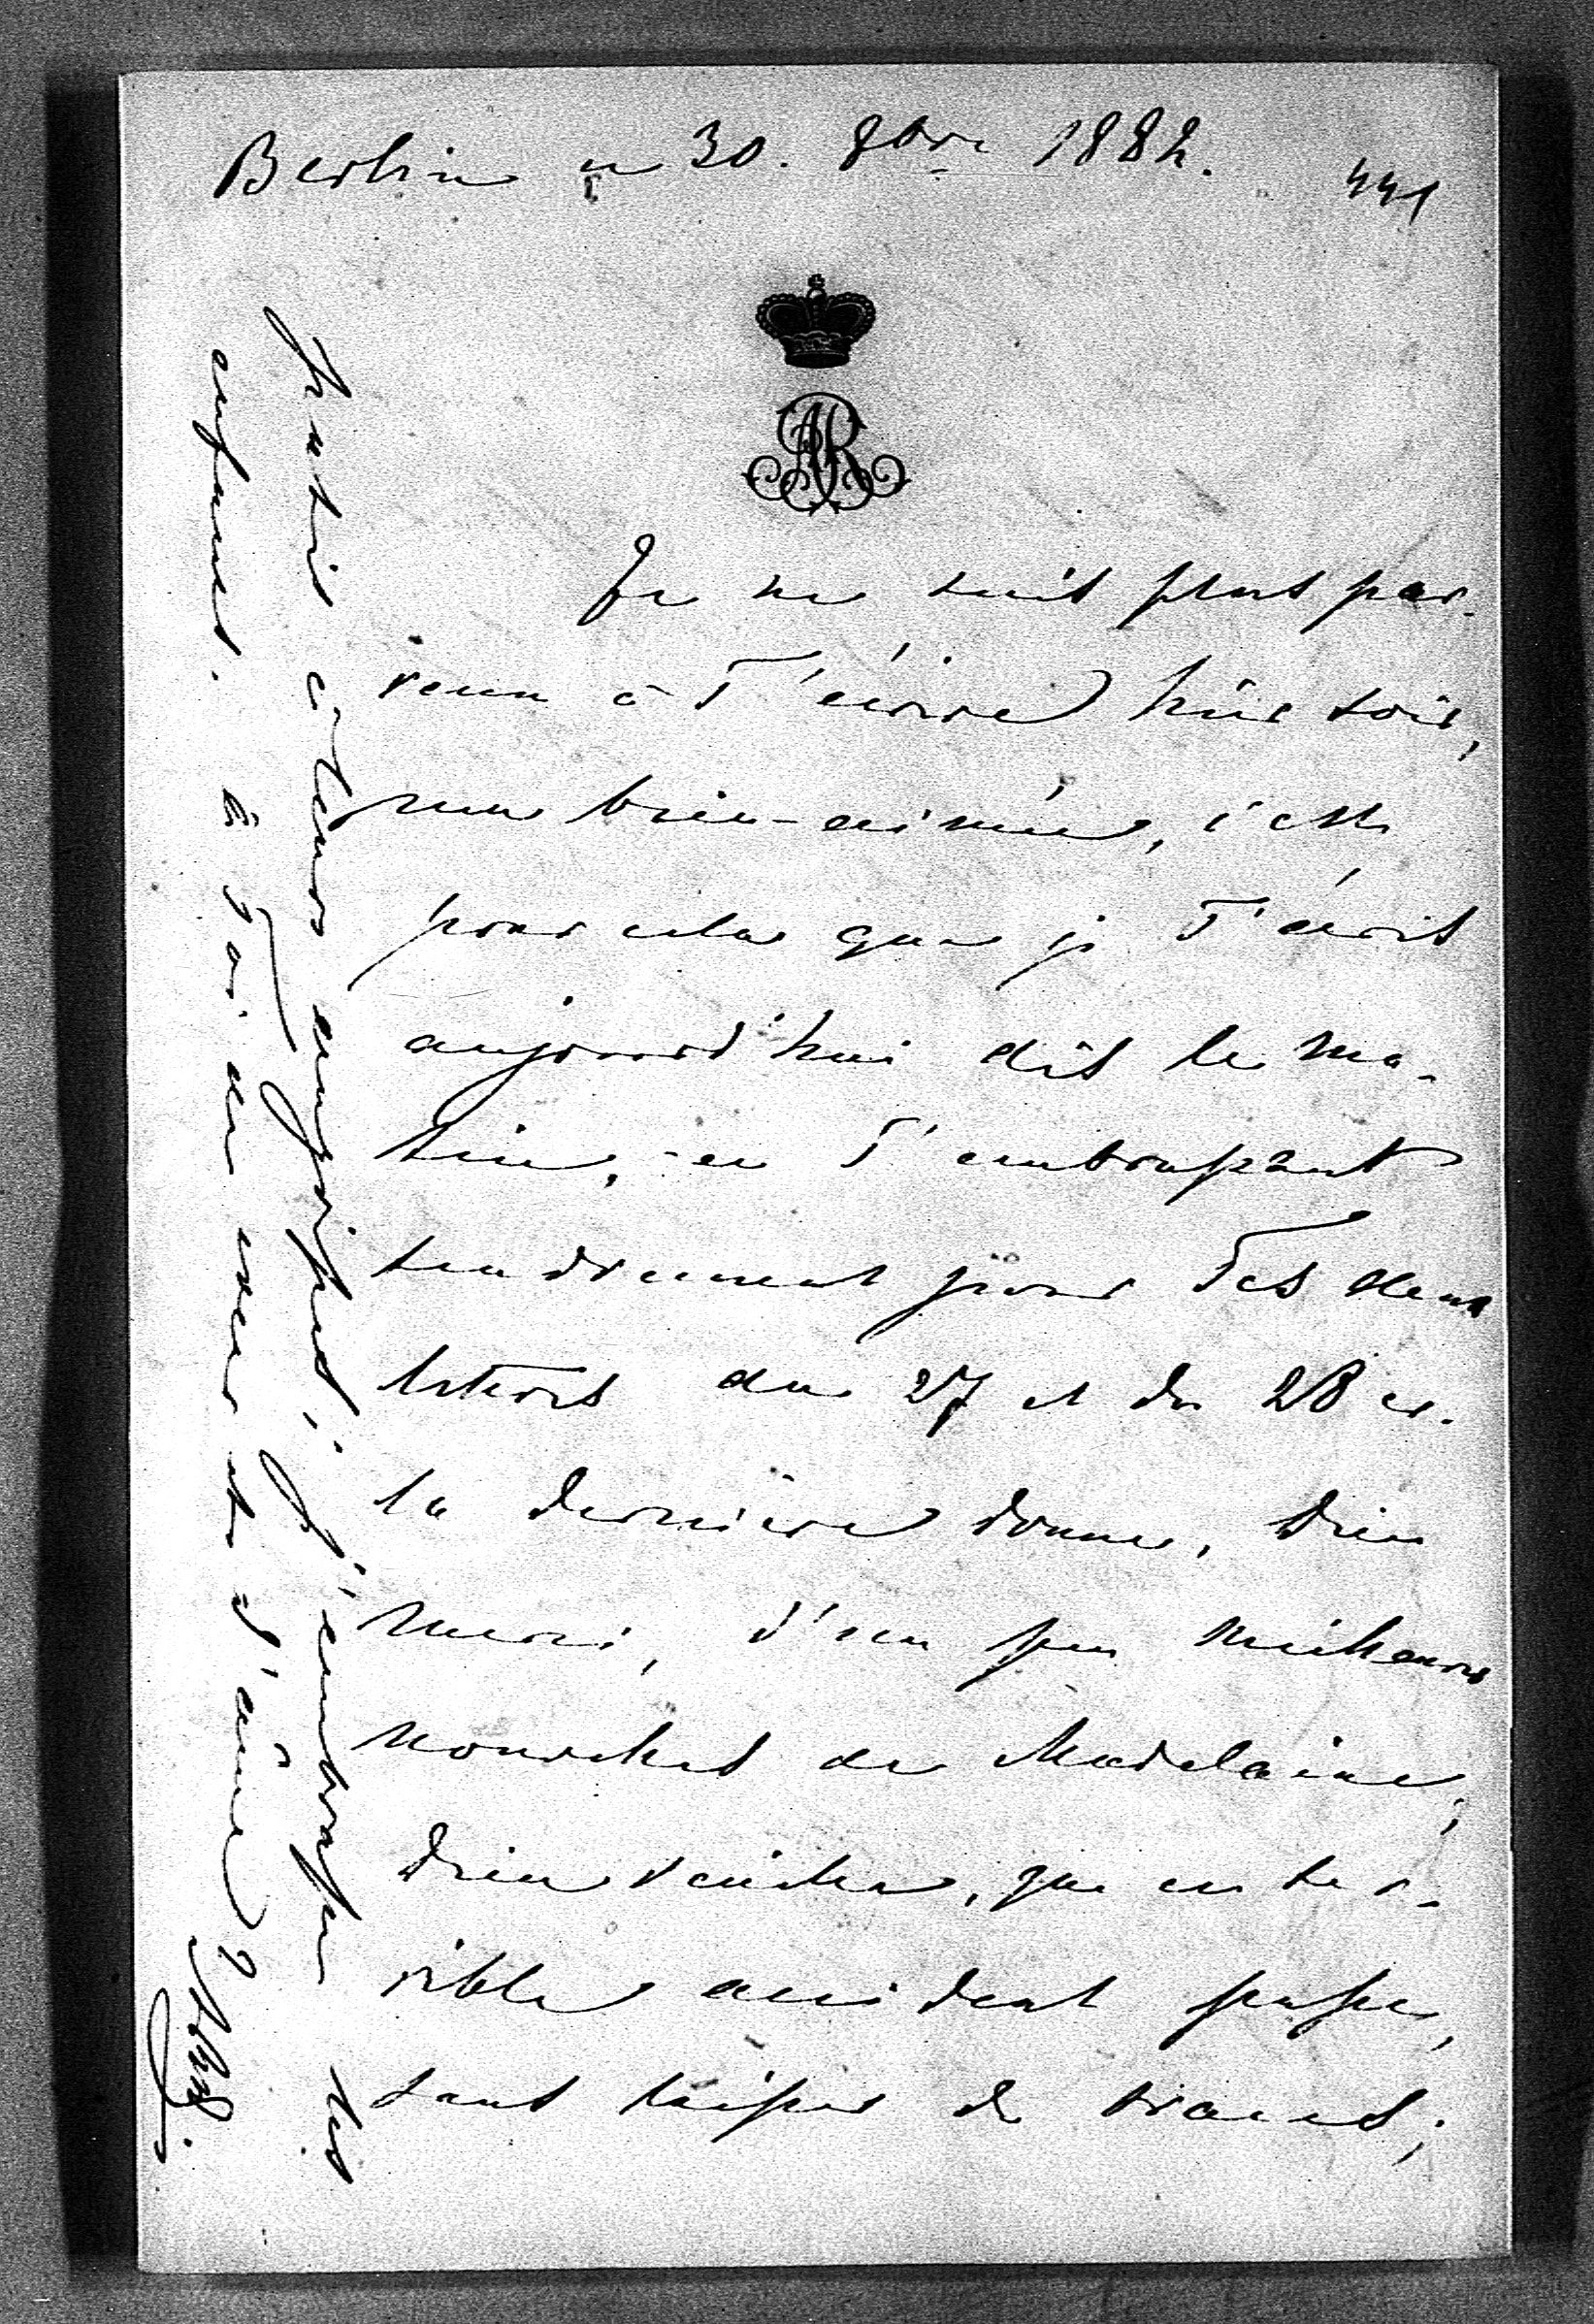 Berlin ce 30. 8bre 1882.
441
AR
Je ne suis plus par-
venu à T'écrire hier soir,
ma bien-aimée, c'est
pour cela que je T'écris
aujourd'hui dès le ma-
tin, en T'embrassant
tendrement pour Tes deux
lettres du 27 et du 28 cr.
la dernière donne, Dieu
merci, d'un peu meilleures
nouvelles de Madelaine,
Dieu veuille, que ce ter-
rible accident passe,
sans laisser de traces;
petits coeurs
j'embrasse les
enfants. à Toi de coeur et d'âme